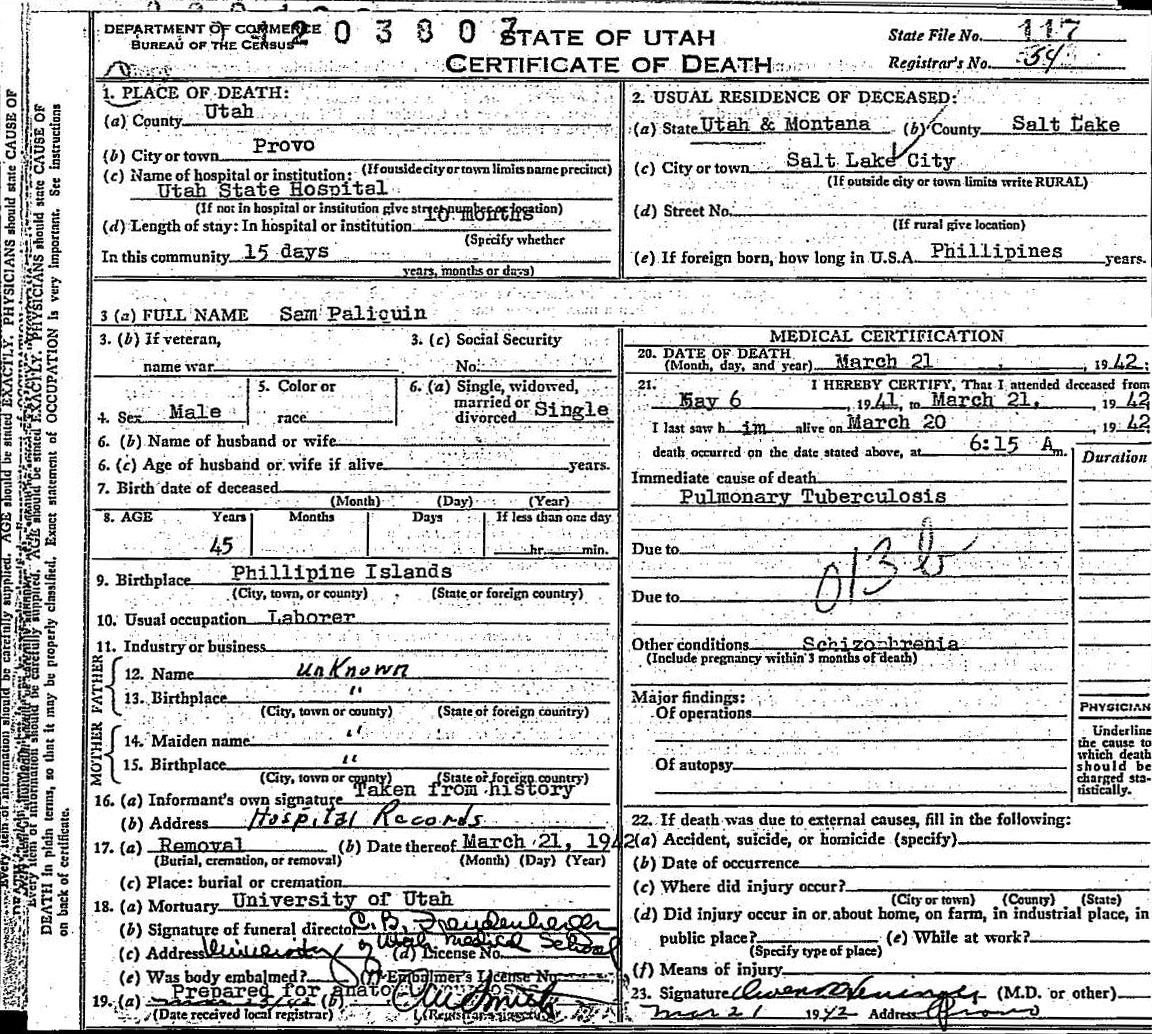 DEPARTMENT OF COMMERCE
BUREAU OF THE CENSUS
203807
STATE OF UTAH
CERTIFICATE OF DEATH
State File No. 117
Registrar's No. 54
1. PLACE OF DEATH:
(a) County Utah
(b) City or town Provo
(If outside city or town limits name precinct)
(c) Name of hospital or institution:
Utah State Hospital
(If not in hospital or institution give street number or location)
(d) Length of stay: In hospital or institution 10 months
(Specify whether
In this community 15 days
years, months or days)
2. USUAL RESIDENCE OF DECEASED:
(a) State Utah & Montana (b) County Salt Lake
(c) City or town Salt Lake City
(If outside city or town limits write RURAL)
(d) Street No.
(If rural give location)
(e) If foreign born, how long in U.S.A. Phillipines years.
3 (a) FULL NAME Sam Paliquin
3. (b) If veteran,
name war
3. (c) Social Security
No.
4. Sex Male
5. Color or
race
6. (a) Single, widowed,
married or
divorced Single
6. (b) Name of husband or wife
6. (c) Age of husband or wife if alive years.
7. Birth date of deceased
(Month) (Day) (Year)
8. AGE Years Months Days If less than one day
45 hr. min.
9. Birthplace Phillipine Islands
(City, town, or county) (State or foreign country)
10. Usual occupation Laborer
11. Industry or business
FATHER
12. Name unknown
13. Birthplace "
(City, town or county) (State or foreign country)
MOTHER
14. Maiden name "
15. Birthplace "
(City, town or county) (State or foreign country)
16. (a) Informant's own signature Taken from history
(b) Address Hospital Records
17. (a) Removal (b) Date thereof March 21, 1942
(Burial, cremation, or removal) (Month) (Day) (Year)
(c) Place: burial or cremation
18. (a) Mortuary University of Utah
(b) Signature of funeral director C. B.
(c) Address University of Utah Medical School (d) License No.
(e) Was body embalmed? (f) Embalmer's License No.
Prepared for
19. (a) (b)
(Date received local registrar) (Registrar's signature)
MEDICAL CERTIFICATION
20. DATE OF DEATH
(Month, day, and year) March 21, 1942.
21. I HEREBY CERTIFY, That I attended deceased from
May 6, 1941, to March 21, 1942
I last saw him alive on March 20, 1942
death occurred on the date stated above, at 6:15 A m.
Duration
Immediate cause of death
Pulmonary Tuberculosis
Due to
013 b
Due to
Other conditions Schizophrenia
(Include pregnancy within 3 months of death)
Major findings:
Of operations
Of autopsy
PHYSICIAN
Underline
the cause to
which death
should be
charged sta-
tistically.
22. If death was due to external causes, fill in the following:
(a) Accident, suicide, or homicide (specify)
(b) Date of occurrence
(c) Where did injury occur?
(City or town) (County) (State)
(d) Did injury occur in or about home, on farm, in industrial place, in
public place? (e) While at work?
(Specify type of place)
(f) Means of injury
23. Signature Owen (M.D. or other)
Mar 21 1942 Address Provo
Every item of information should be carefully supplied. AGE should be stated EXACTLY. PHYSICIANS should state CAUSE OF
DEATH in plain terms, so that it may be properly classified. Exact statement of OCCUPATION is very important. See instructions
on back of certificate.